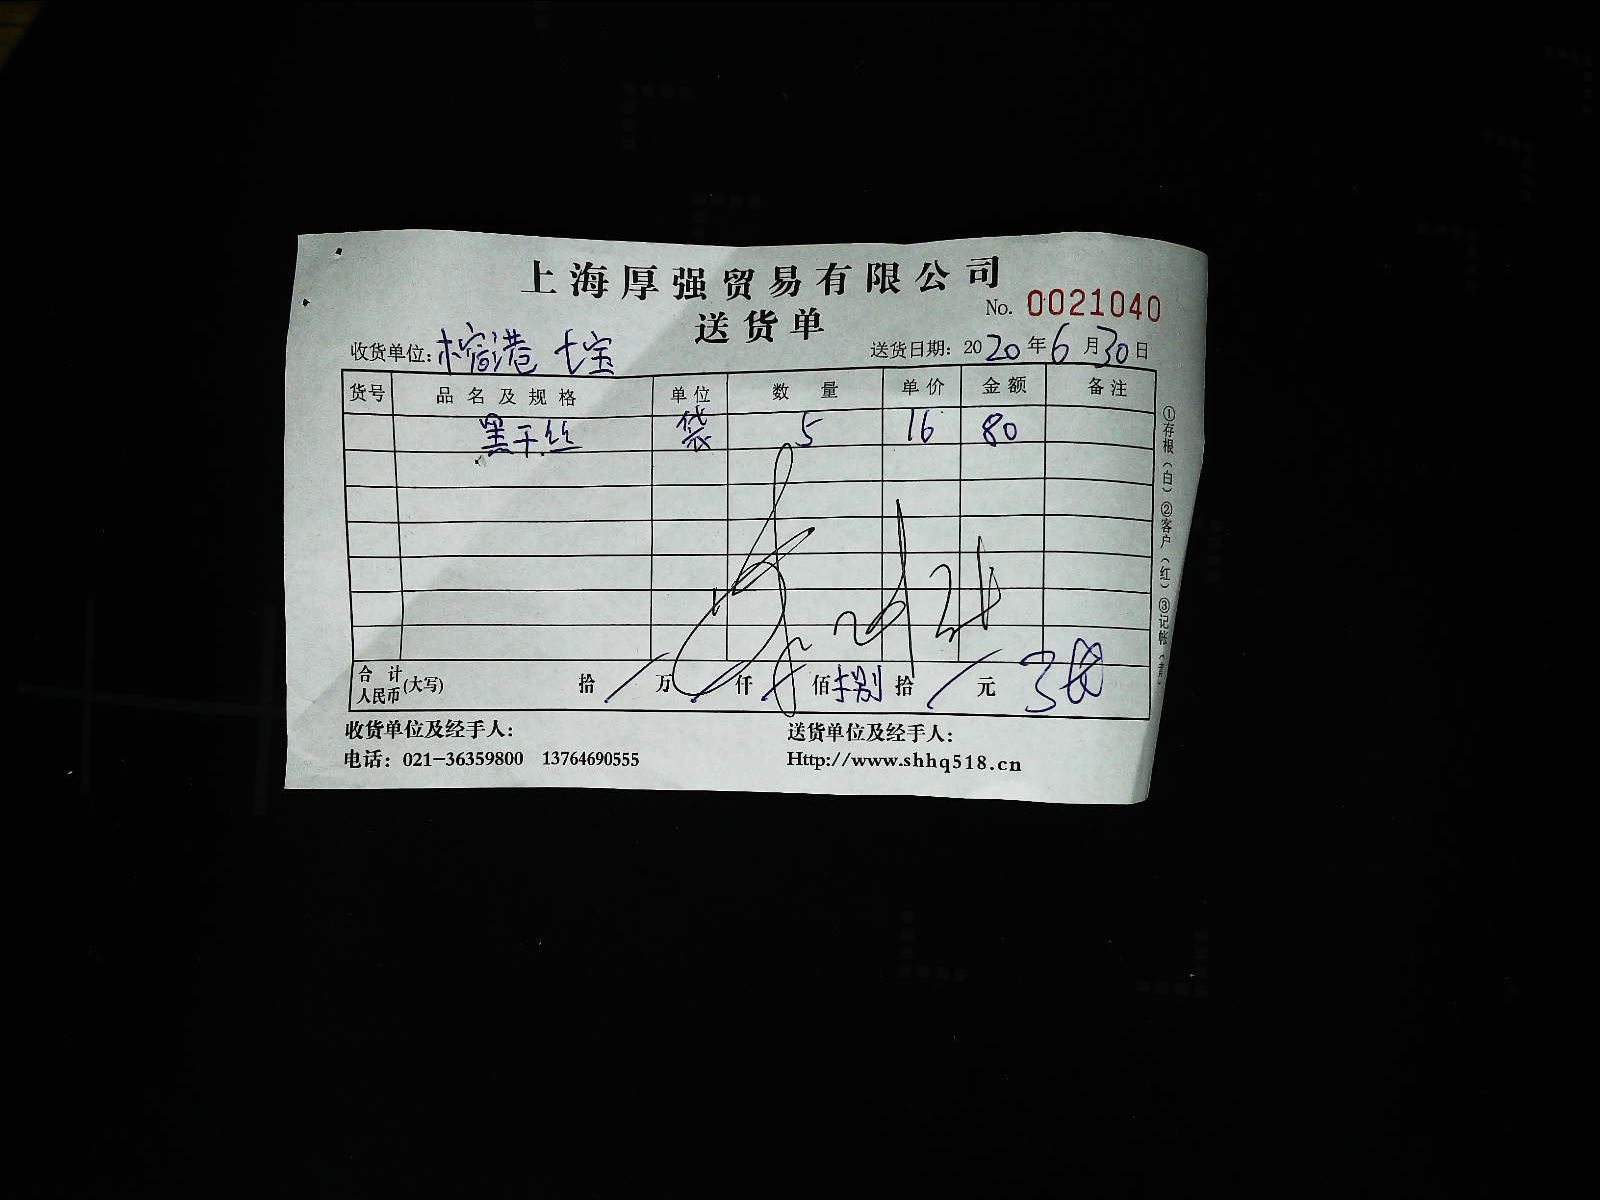 上海厚强贸易有限公司
送货单
No. 0021040
收货单位:榕港 七宝
送货日期: 2020年6月30日
货号 品名及规格 单位 数量 单价 金额 备注
黑干丝 袋 5 16 80
合计人民币(大写) 拾/万/仟/佰捌拾/元
收货单位及经手人:
送货单位及经手人:
电话: 021-36359800 13764690555
Http://www.shhq518.cn
①存根(白)②客户(红)③记帐